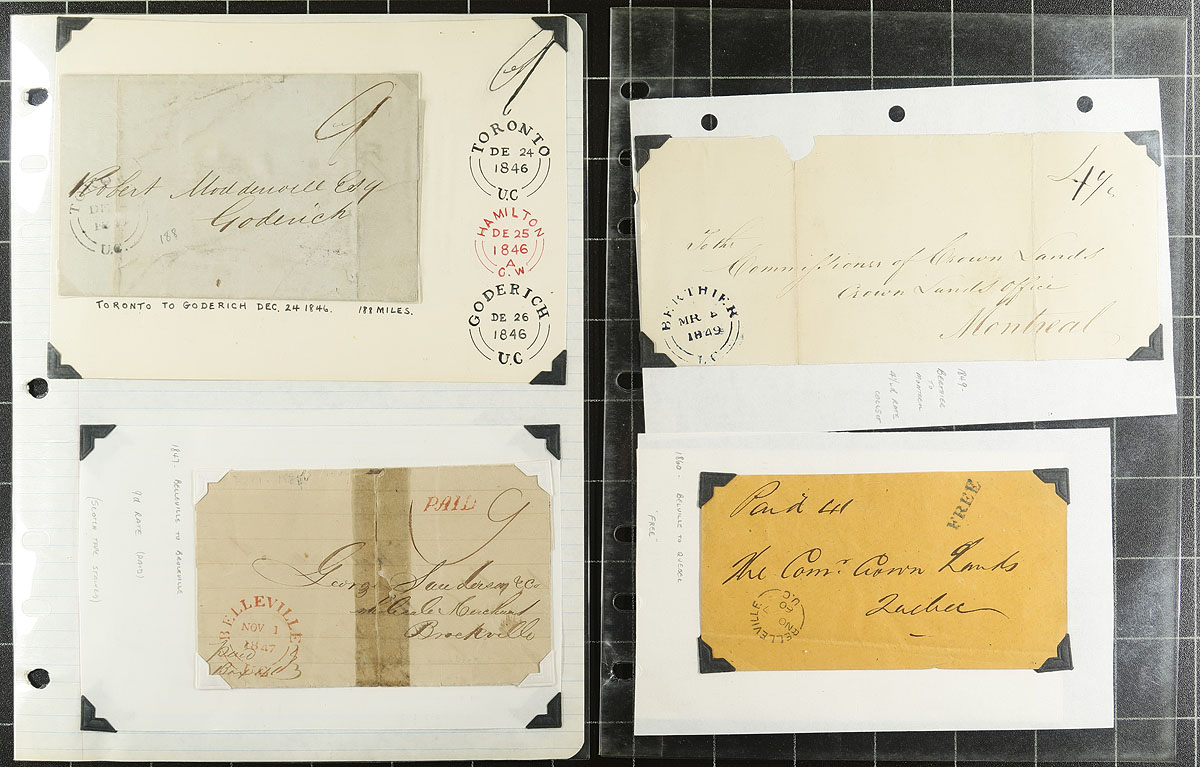 9
TORONTO
DE 24
1846
U.C
HAMILTON
DE 25
1846
A
C.W.
GODERICH
DE 26
1846
U.C
9
Robert
Goderich
U.C
TORONTO TO GODERICH DEC. 24 1846. 188 MILES.
1847 BELLEVILLE TO BROCKVILLE
9d RATE (PAID)
PAID
9
Brockville
BELLEVILLE
NOV 1
1847
4½
To the
Commissioner of Crown Lands
Crown Lands Office
Montreal
BERTHIER
MR
1849
L.C
1849
BERTHIER
TO
MONTREAL
4½d RATE
1860 - BELLVILLE TO QUEBEC
"FREE"
Paid 41
FREE
The Comr. Crown Lands
Quebec
BELLEVILLE
U.C